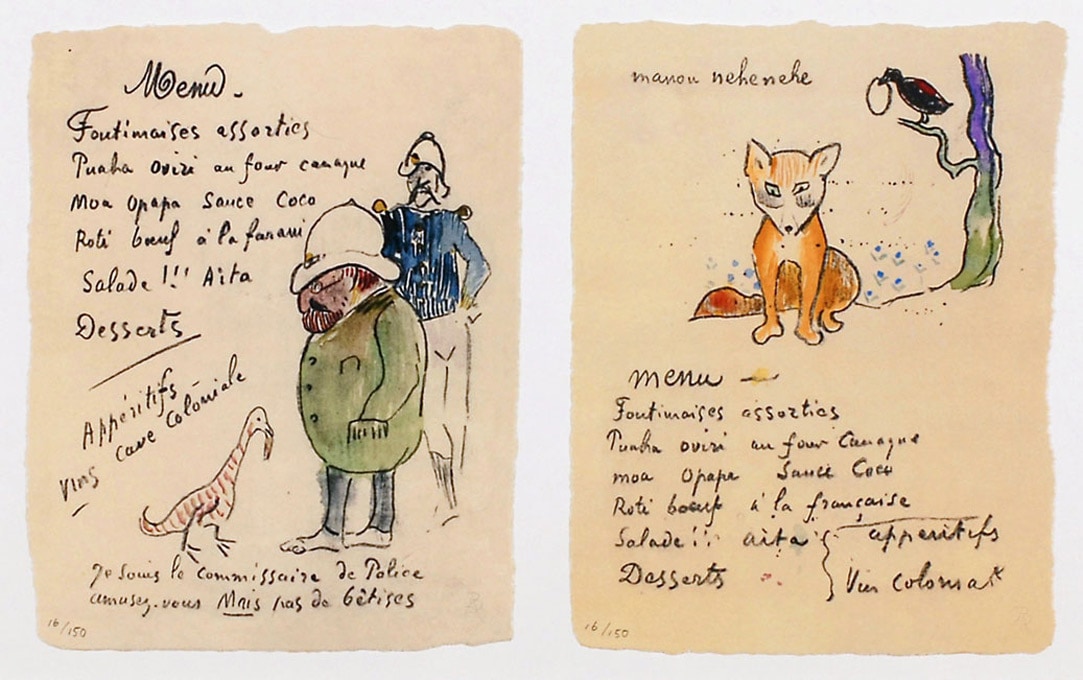 Menu.
Foutimaises assorties
Puaha oviri au four canaque
Moa Opapa Sauce Coco
Roti boeuf à la farani
Salade !!! Aita
Desserts
Appéritifs
Vins cave Coloniale
Je Souis le Commissaire de Police
amusez-vous Mais pas de bêtises
16/150
manou nehenehe
menu
Foutimaises assorties
Puaha oviri au four Canaque
moa Opapa Sauce Coco
Roti boeuf à la française
Salade !!! aita
Desserts
apperitifs
Vin
16/150